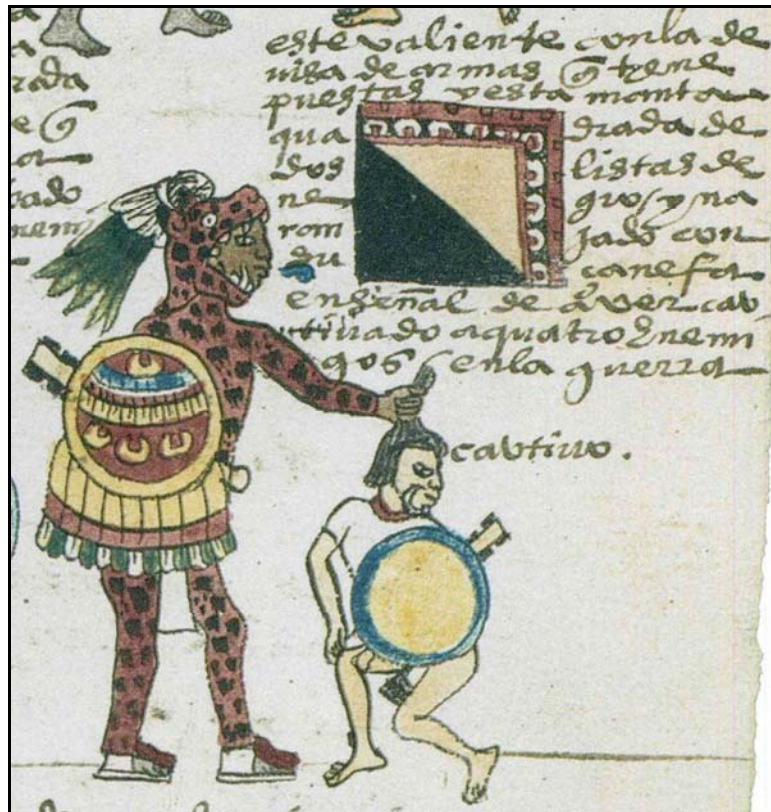 rada
nemi
este valiente conla de
uisa de armas q̃ tyene
puestas y esta manta
qua drada de
dos listas de
ne gro y na
ran jado con
su canefa
en señal de aver cav
tiuado aquatro enemi
gos enla guerra
cavtiuo.